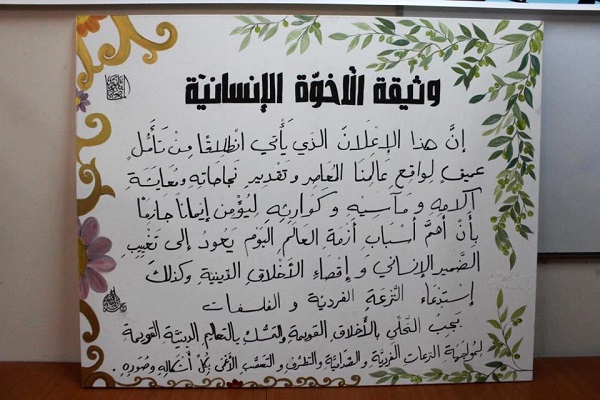 وثيقة الأخوّة الإنسانيّة
إنَّ هذا الإعلانَ الذي يَأْتي انْطِلاقًا مِنْ تَأَمُّلٍ
عميقٍ لِواقِعِ عَالمِنَا المُعاصِرِ وتَقْديرِ نجاحاتِهِ ومُعايشةِ
آلامِهِ ومآسيهِ وكَوارِثِه لَيُؤمِن إيمَانًا جازمًا
بأنَّ أهمَّ أسْبابِ أزمَةِ العالمِ اليومَ يَعُودُ إلى تَغْييبِ
الضميرِ الإنسانيِّ وإقصاءِ الأخْلاقِ الدِّينيةِ وكذلكَ
إستدعاء النَّزْعَةِ الفرديَّةِ والفلسفات
يجب التحلي بالأخلاق القويمة والتمسك بالتعاليم الدينية القويمة
لمواجهة النزعات الفرديّة والصّداميّة والتطرّف والتعصّب الأعمى بكُلِّ أشكالِهِ وصُورِهِ.